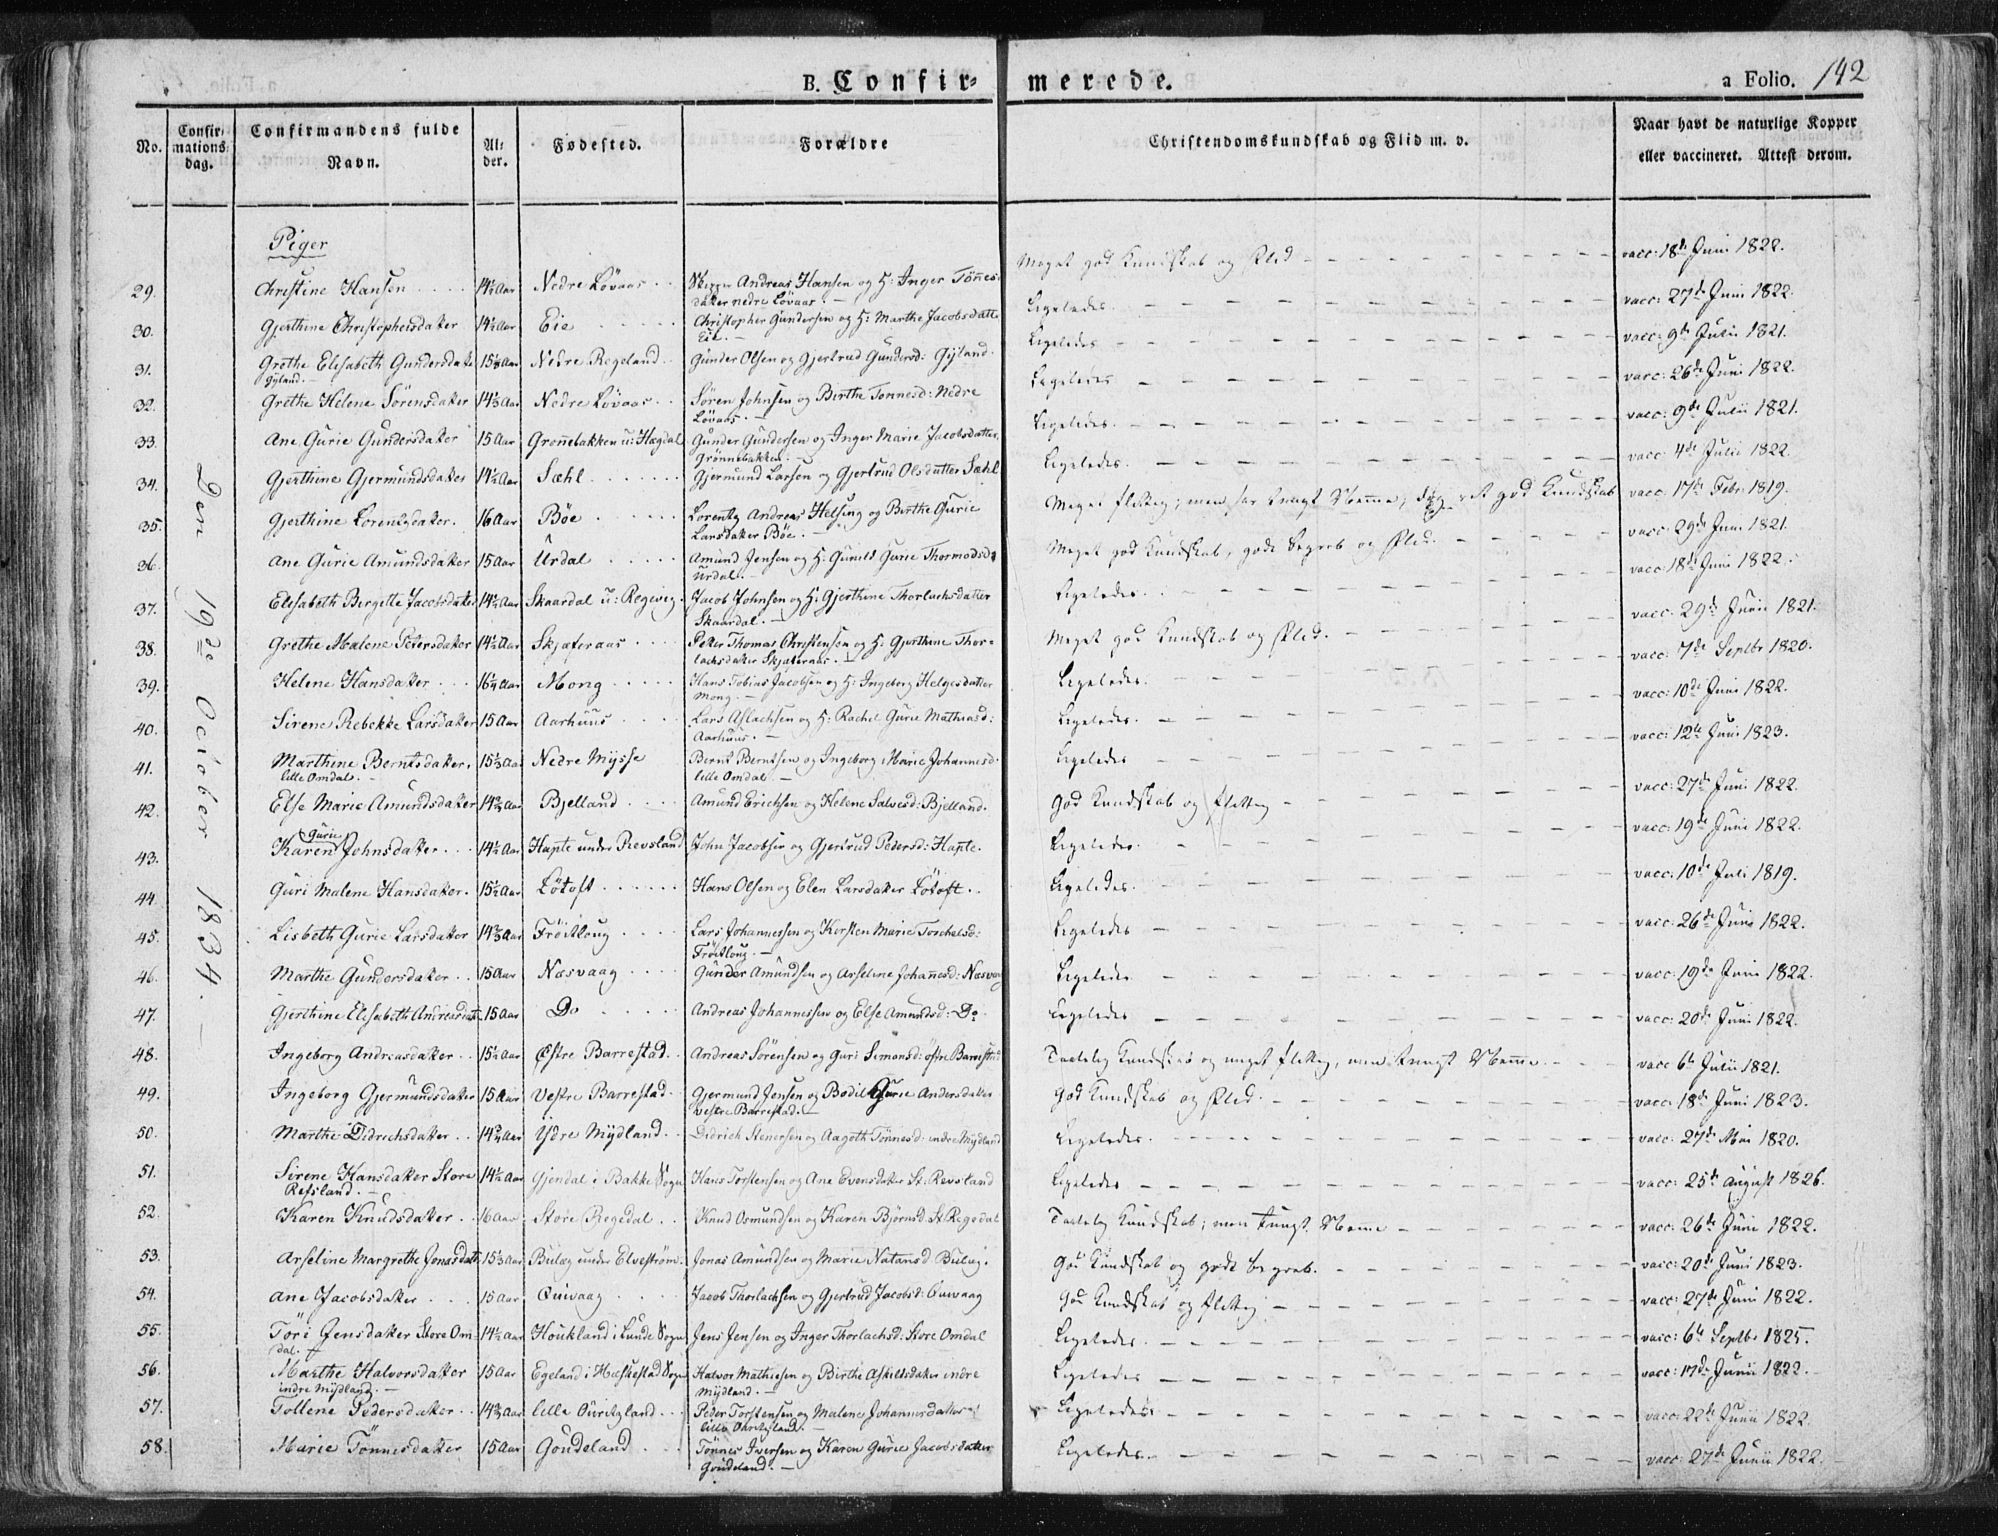 B. Confir-
merede.
a Folio. 142
No.
Confir-
mations-
dag.
Confirmandens fulde
Navn.
Al-
der.
Fødested.
Forældre
Christendomskundskab og Flid m. v.
Naar havt de naturlige Kopper
eller vaccineret. Attest derom.
Den 19de October 1834. —
Piger
29. Christine Hansen 14½ Aar Nedre Lövaas Andreas Hansen og H: Inger Tönes- Meget god Kundskab og Flid vacc: 18de Juni 1822.
datter nedre Lövaas. —
30. Gjerthine Christophersdatter 14½ Aar Eie Christopher Gundersen og H: Marthe Jacobsdatt: Ligeledes vacc: 27de Juni 1822.
Eie. —
31. Grethe Elisabeth Gundersdatte 15 Aar Nedre Regeland Gunder Olsen og Gjertrud Gundersd: Gyland. Ligeledes vacc: 9de Julii 1821.
Gyland. —
32. Grethe Helene Sörensdatter 14 Aar Nedre Lövaas Sören Johnsen og Birthe Tönnesd: Nedre Ligeledes vacc: 26de Juni 1822.
Lövaas. —
33. Ane Gurie Gundersdatter 15 Aar Grönebakken u: Hægdal Gunder Gundersen og Inger Marie Jacobsdatter Ligeledes. vacc: 9de Julii 1821.
Grönnebakken. —
34. Gjerthine Gjermundsdatter 14½ Aar Sæhl Gjermund Larsen og Gjertrud Olsdatter Sæhl Ligeledes. vacc: 4de Julii 1822.
35. Gjerthine Lorentzdatter. 16 Aar Böe Lorentz Andreas Helsing og Birthe Gurie Meget flittig; men har tungt Nemme, god Kundskab vacc: 17de Febr 1819.
Larsdatter Böe. —
36. Ane Gurie Amundsdatter 15 Aar Urdal Amund Jensen og H: Gunild Gurie Thormodsd: Meget god Kundskab, godt Begreb og Flid. vacc: 29de Juni 1821.
Urdal. —
37. Elisabeth Bergitte Jacobsdatter 14½ Aar Skaardal u: Regevig. Jacob Johnsen og H: Gjerthine Thorlachsdatter Ligeledes. vacc 18de Juni 1822.
Skaardal. —
38. Grethe Malene Petersdatter 14½ Aar Skjæferaas Peter Thomas Christensen og H: Gjerthine Thor- Meget god Kundskab og Flid. vacc: 29de Junii 1821.
lachsdatter Skjæferaas. —
39. Helene Hansdatter 16¼ Aar Mong Hans Tobias Jacobsen og H: Ingeborg Helgesdatter Ligeledes. vacc: 7de Septbr 1820.
Mong. —
40. Sirene Rebekke Larsdatter 15 Aar Aarhuus Lars Aslachsen og H: Rachel Gurie Mathiasd: Ligeledes. vacc: 10de Juni 1822.
Aarhuus. —
41. Marthine Berntsdatter. 15⅓ Aar Nedre Mysse Bernt Berntsen og Ingeborg Marie Johannesd: Ligeledes vacc: 12te Juni 1823.
lille Omdal. — lille Omdal. —
42. Else Marie Amundsdatter 14¾ Aar Bjelland Amund Erichsen og Helene Salvesd: Bjelland. God Kundskab og flittig vacc: 27de Juni 1822.
43. Karen Gurie Johnsdatter 14½ Aar Hapte under Revsland John Jacobsen og Gjertrud Pedersd: Hapte. Ligeledes. vacc: 19de Juni 1822.
44. Guri Malene Hansdatter. 15½ Aar Lötoft Hans Olsen og Elen Larsdatter Lötoft. Ligeledes. vacc: 10de Juli 1819.
45. Lisbeth Gurie Larsdatter 14¾ Aar Fröitloug Lars Johannessen og Kirsten Marie Torchelsd: Ligeledes vacc: 26de Juni 1822.
Fröitloug. —
46. Marthe Gundersdatter 15 Aar Næsvaag Gunder Amundsen og Arseline Johanesd: Næsvaag Ligeledes vacc: 19de Juni 1822.
47. Gjerthine Elisabeth Andreasdatt: 15 Aar Do Andreas Johannessen og Else Amundsd: Do. Ligeledes vacc: 20de Juni 1822.
48. Ingeborg Andreasdatter 15½ Aar Östre Barrestad. Andreas Sörensen og Guri Simonsd: östre Barrestad Taalelig Kundskab og meget flittig, men tungt Nemme vacc 6te Julii 1821.
49. Ingeborg Gjermundsdatter 15 Aar Vestre Barrestad. Gjermund Jensen og Bodil Gurie Andersdatter God Kundskab og Flid. vacc: 18de Juni 1823.
Vestre Barrestad. —
50. Marthe Didrichsdatter 14¾ Aar Ydre Mydland. Didrich Stenersen og Aagoth Tönnesd: indre Mydland Ligeledes. vacc: 27de Mai 1820.
51. Sirene Hansdatter Store 14½ Aar Gjendal i Bakke Sogn Hans Torstensen og Ane Evensdatter St: Revsland Ligeledes vacc: 25de August 1826.
Refsland. —
52. Karen Knudsdatter 16 Aar Store Regedal. Knud Osmundsen og Karen Björnsd: St: Regedal Taalelig Kundskab; men tungt Nemme vacc: 26de Juni 1822.
53. Arseline Margrethe Jonasdatt 15⅓ Aar Bulæg under Elveström. Jonas Amundsen og Marie Natansd Bulæg. God Kundskab og godt begreb. vacc: 20de Juni 1823.
54. Ane Jacobsdatter 15 Aar Quivaag Jacob Thorlachsen og Gjertrud Jacobsd: Quivaag God Kundskab og flittig vacc: 27de Juni 1822.
55. Töri Jensdatter Store Om- 14½ Aar Houkland i Lunde Sogn Jens Jensen og Inger Thorlachsd: Store Omdal Ligeledes. vacc: 6te Septbr 1825.
dal.
56. Marthe Halvorsdatter 15 Aar Egeland i Hæskestad Sogn Halvor Mathiesen og Birthe Askildsdatter indre Ligeledes vacc: 17de Junii 1822.
indre Mydland. — Mydland. —
57. Tollene Pedersdatter 14¾ Aar lille Peder Torstensen og Malene Johannisdatter Ligeledes vacc: 22de Junii 1822.
lille
58. Marie Tönnesdatter 15 Aar Goudeland Tönnes Iversen og Karen Gurie Jacobsdatter Ligeledes. vacc: 27de Junii 1822.
Goudeland. —